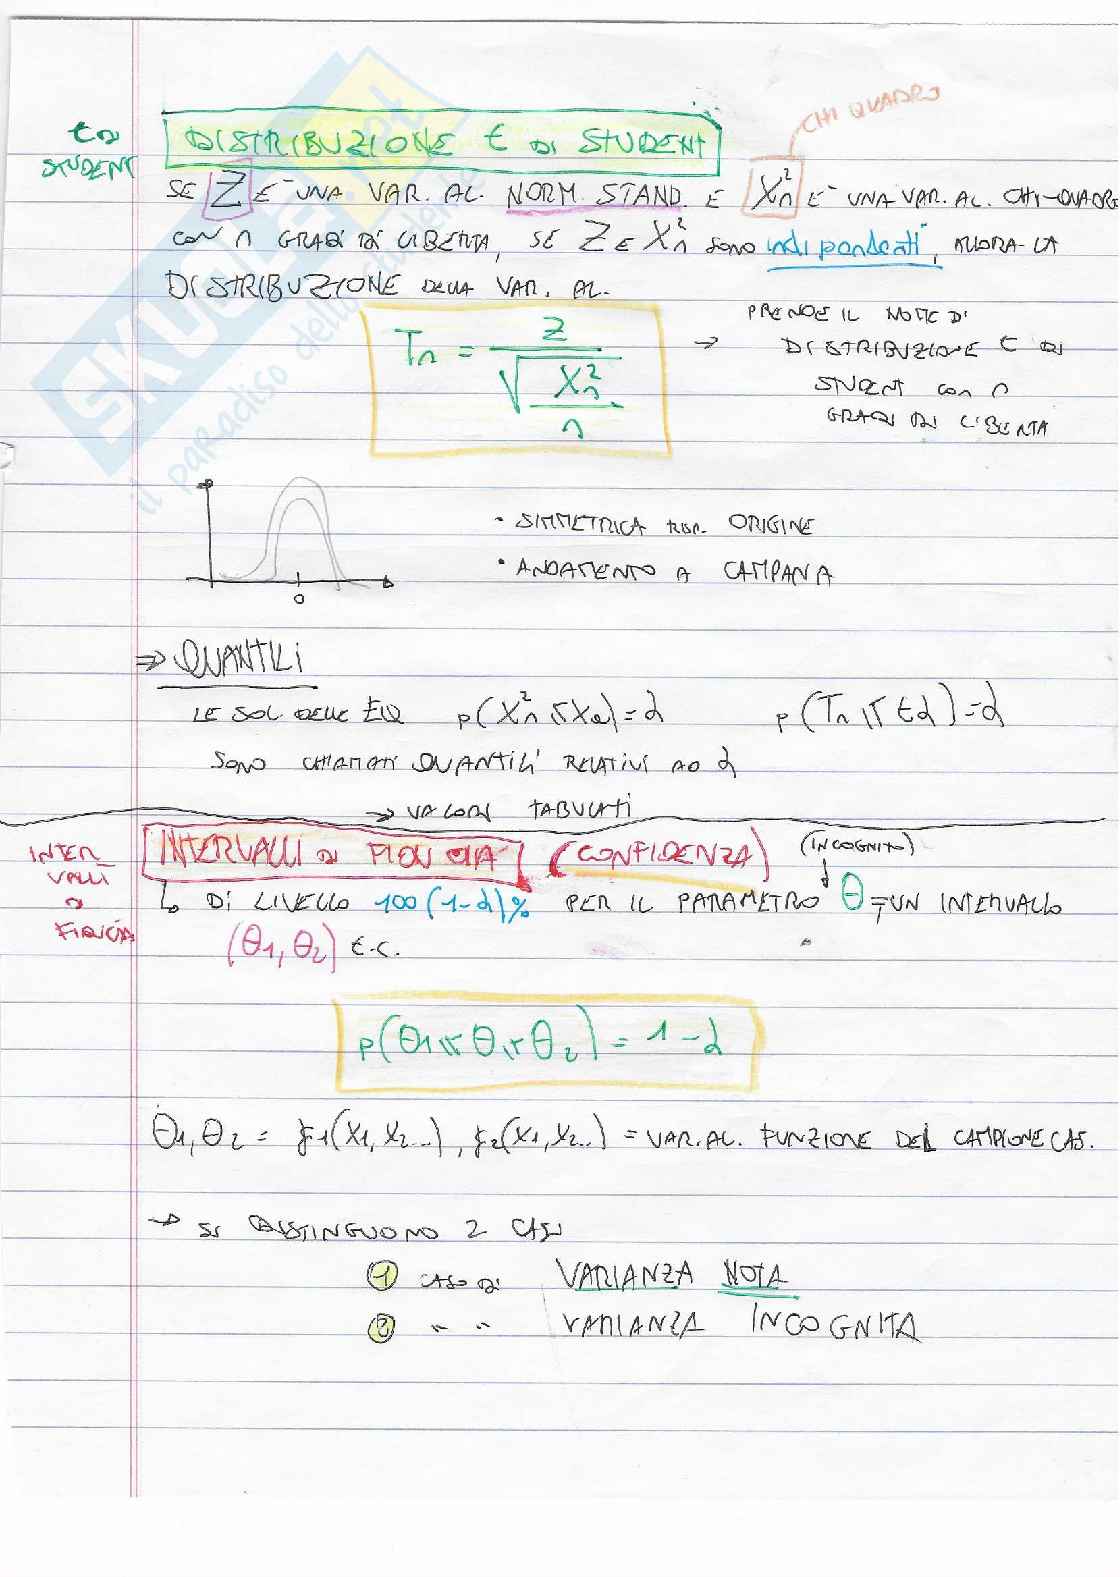 CHI QUADRO
t DI
STUDENT
DISTRIBUZIONE t DI STUDENT
SE Z E' UNA VAR. AL. NORM. STAND. E X²n E' UNA VAR. AL. CHI-QUADR
CON n GRADI DI LIBERTA, SE Z E X²n SONO indipendenti, ALLORA LA
DISTRIBUZIONE DELLA VAR. AL.
Tn = Z / √(X²n / n)
→ PRENDE IL NOME DI
DISTRIBUZIONE t DI
STUDENT CON n
GRADI DI LIBERTA
0
• SIMMETRICA RISP. ORIGINE
• ANDAMENTO A CAMPANA
⇒ QUANTILI
LE SOL. DELLE EQ P(X²n ≤ Xα) = α P(Tn ≤ tα) = α
SONO CHIAMATI QUANTILI RELATIVI AD α
→ VALORI TABULATI
INTER
VALLI
DI
FIDUCIA
INTERVALLI DI FIDUCIA (CONFIDENZA)
(INCOGNITO)
DI LIVELLO 100(1-α)% PER IL PARAMETRO θ = UN INTERVALLO
(θ1, θ2) t.c.
P(θ1 ≤ θ ≤ θ2) = 1 - α
θ1, θ2 = f1(X1, X2...), f2(X1, X2...) = VAR. AL. FUNZIONE DEL CAMPIONE CAS.
→ SI DISTINGUONO 2 CASI
1 CASO DI VARIANZA NOTA
2 " " VARIANZA INCOGNITA
SKUOLA.net
il paradiso dello studente